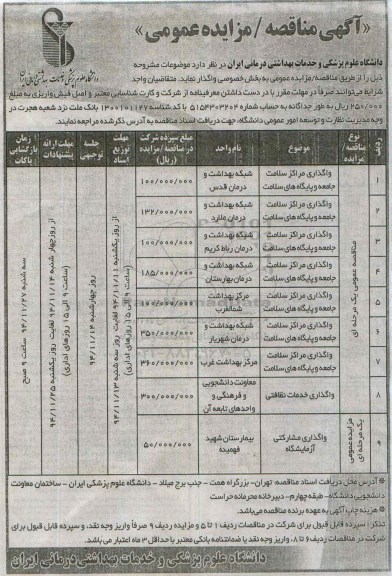 «آگهی مناقصه/مزایده عمومی»
دانشگاه علوم پزشکی و خدمات بهداشتی درمانی ایران
دانشگاه علوم پزشکی و خدمات بهداشتی درمانی ایران در نظر دارد موضوعات مشروحه
ذیل را از طریق مناقصه/مزایده عمومی به بخش خصوصی واگذار نماید. متقاضیان واجد
شرایط می‌توانند صرفاً در مهلت مقرر با در دست داشتن معرفینامه از شرکت و کارت شناسایی معتبر و اصل فیش واریزی به مبلغ
۲۵۰/۰۰۰ ریال به طور جداگانه به حساب شماره ۵۱۵۴۳۰۳۲۰۴ با کد شناسه ۱۳۰۰۱۰۱۱۴۷ بانک ملت نزد شعبه هجرت در
وجه مدیریت نظارت و توسعه امور عمومی دانشگاه، جهت دریافت اسناد مناقصه به آدرس ذکر شده مراجعه نمایند.
ردیف | مناقصه/مزایده | موضوع | نام واحد | مبلغ سپرده شرکت در مناقصه/مزایده (ریال) | مهلت توزیع اسناد | جلسه توجیهی | مهلت ارائه پیشنهادات | زمان بازگشایی پاکات
۱ واگذاری مراکز سلامت جامعه و پایگاه های سلامت شبکه بهداشت و درمان قدس ۱۰۰/۰۰۰/۰۰۰
۲ واگذاری مراکز سلامت جامعه و پایگاه های سلامت شبکه بهداشت و درمان ملارد ۱۳۲/۰۰۰/۰۰۰
۳ واگذاری مراکز سلامت جامعه و پایگاه های سلامت شبکه بهداشت و درمان رباط کریم ۱۰۰/۰۰۰/۰۰۰
۴ واگذاری مراکز سلامت جامعه و پایگاه های سلامت شبکه بهداشت و درمان بهارستان ۱۸۵/۰۰۰/۰۰۰
۵ واگذاری مراکز سلامت جامعه و پایگاه های سلامت مرکز بهداشت شمالغرب ۱۰۰/۰۰۰/۰۰۰
۶ واگذاری مراکز سلامت جامعه و پایگاه های سلامت شبکه بهداشت و درمان شهریار ۳۵۰/۰۰۰/۰۰۰
۷ واگذاری مراکز سلامت جامعه و پایگاه های سلامت مرکز بهداشت غرب ۳۶۰/۰۰۰/۰۰۰
۸ واگذاری خدمات نقاقتی معاونت دانشجویی و فرهنگی و واحدهای تابعه آن ۳۰۰/۰۰۰/۰۰۰
۹ واگذاری مشارکتی آزمایشگاه بیمارستان شهید فهمیده ۵۰/۰۰۰/۰۰۰
مناقصه عمومی یک مرحله ای
مزایده عمومی یک مرحله ای
از روز یکشنبه ۹۴/۱۱/۱۱ لغایت روز سه شنبه ۹۴/۱۱/۱۳ (ساعت ۹ الی ۱۵ روزهای اداری)
روز چهارشنبه ۹۴/۱۱/۱۴
از روز چهارشنبه ۹۴/۱۱/۱۴ لغایت روز یکشنبه ۹۴/۱۱/۲۵ (ساعت ۹ الی ۱۵ روزهای اداری)
سه شنبه ۹۴/۱۱/۲۷ ساعت ۹ صبح
* آدرس محل دریافت اسناد مناقصه: تهران- بزرگراه همت - جنب برج میلاد - دانشگاه علوم پزشکی ایران - ساختمان معاونت
دانشجویی دانشگاه- طبقه چهارم- دبیرخانه محرمانه حراست
* هزینه چاپ آگهی به عهده برنده مناقصه می‌باشد.
تذکر: سپرده قابل قبول برای شرکت در مناقصات ردیف ۱ تا ۵ و مزایده ردیف ۹ صرفاً واریز وجه نقد، و سپرده قابل قبول برای
شرکت در مناقصات ردیف ۶ تا ۸، واریز وجه نقد یا ضمانتنامه بانکی معتبر با حداقل ۳ ماه اعتبار می باشد.
دانشگاه علوم پزشکی و خدمات بهداشتی درمانی ایران